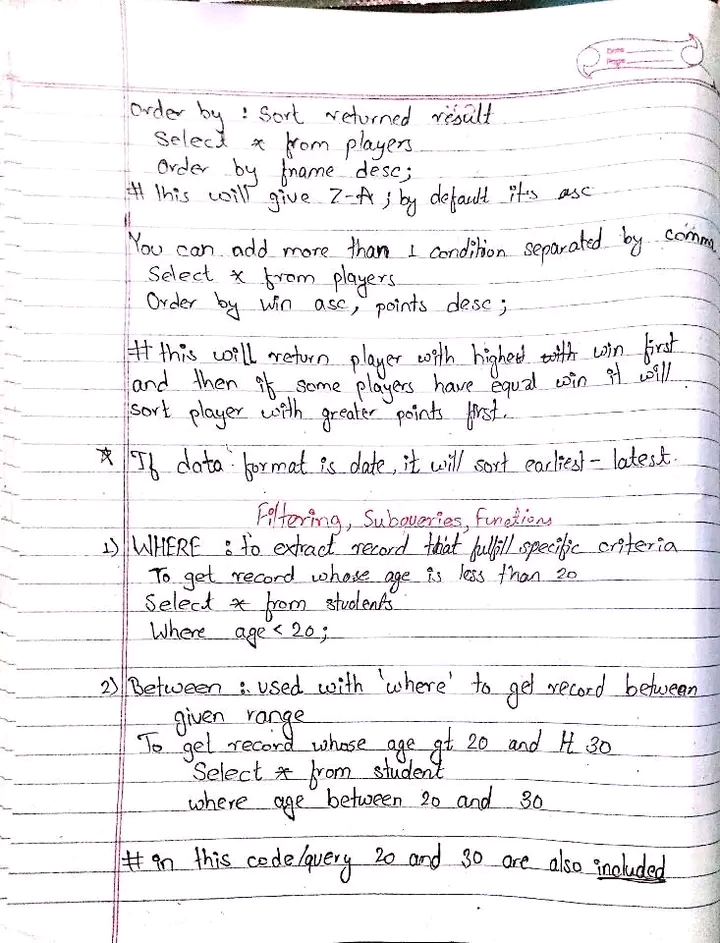 Date
Page
Order by : Sort returned result
Select * from players
Order by fname desc;
# this will give Z-A ; by default it's asc
You can add more than 1 condition separated by comma
Select * from players
Order by win asc, points desc ;
# this will return player with highest with win first
and then if some players have equal win it will
sort player with greater points first.
* If data format is date, it will sort earliest - latest.
Filtering, Subqueries, Functions
1) WHERE : to extract record that fulfill specific criteria
To get record whose age is less than 20
Select * from students
Where age < 20 ;
2) Between : used with 'where' to get record between
given range
To get record whose age gt 20 and lt 30
Select * from student
where age between 20 and 30
# in this code/query 20 and 30 are also included